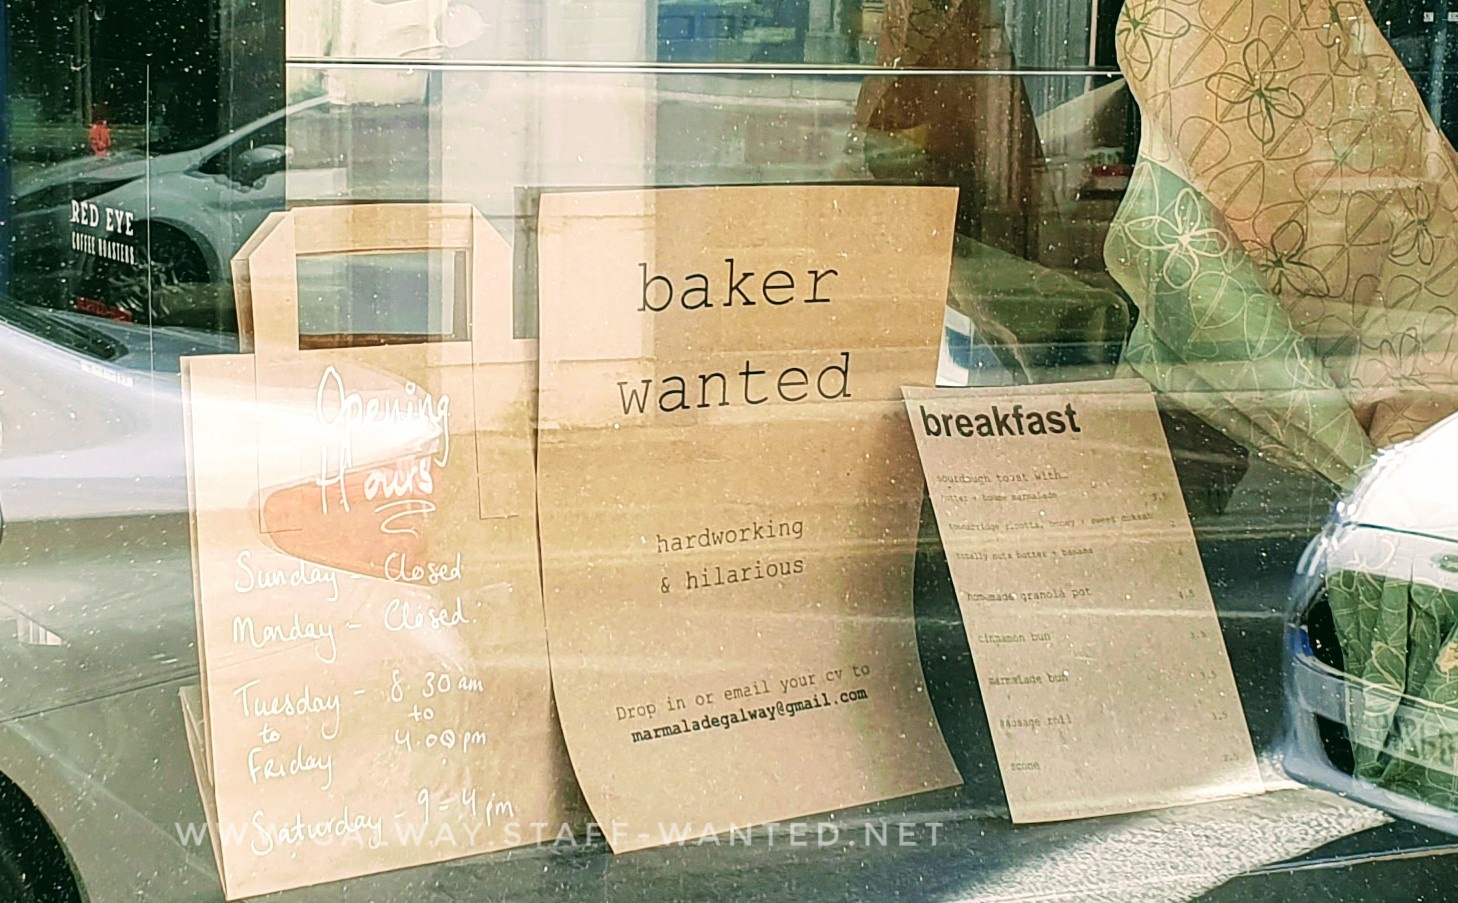 RED EYE
COFFEE ROASTERS
Opening
Hours
Sunday - Closed
Monday - Closed.
Tuesday - 8.30am
to to
Friday 4.00pm
Saturday - 9 - 4 pm
baker
wanted
hardworking
& hilarious
Drop in or email your cv to
marmaladegalway@gmail.com
breakfast
sourdough toast with
butter + house marmalade 3.5
ricotta, honey +
totally nuts butter + banana
homemade granola pot 4.5
cinnamon bun 3.5
marmalade bun 3.5
sausage roll 3.5
scone
WWW.GALWAY.STAFF-WANTED.NET